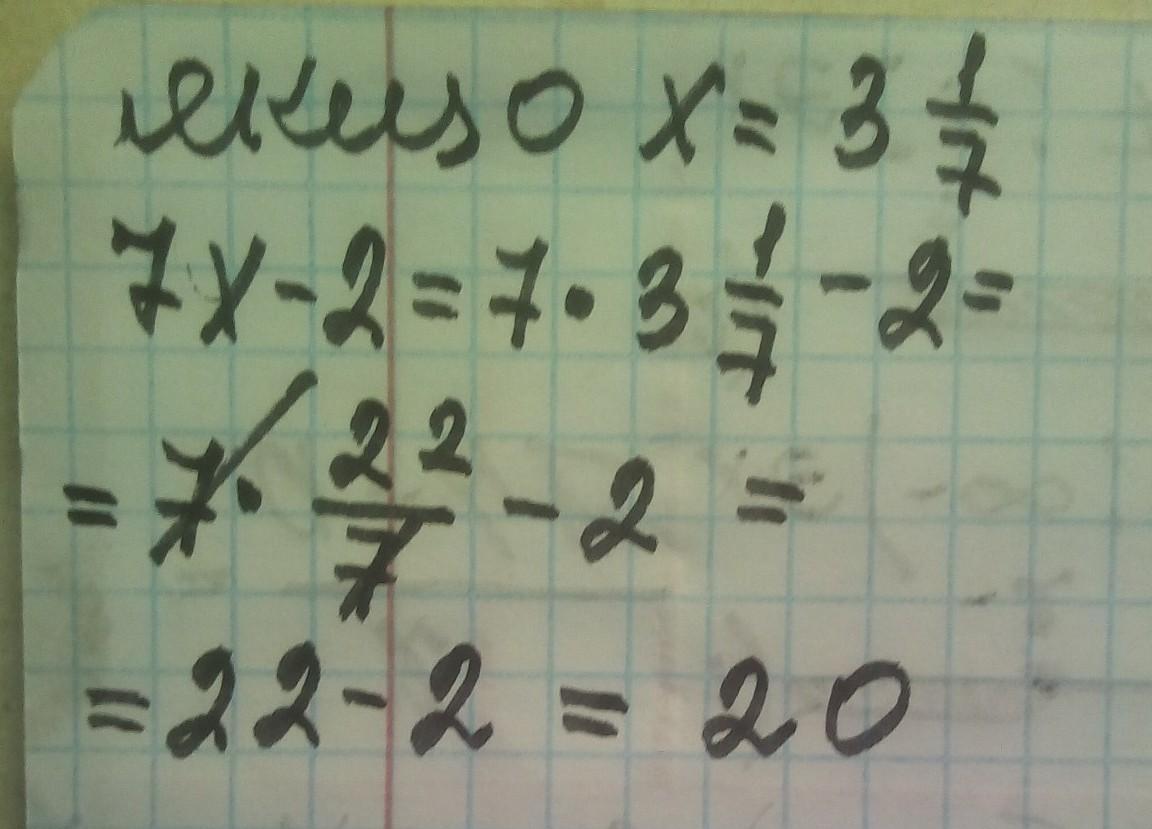 якщо x = 3 1/7
7x - 2 = 7 · 3 1/7 - 2 =
= 7 · 22/7 - 2 =
= 22 - 2 = 20